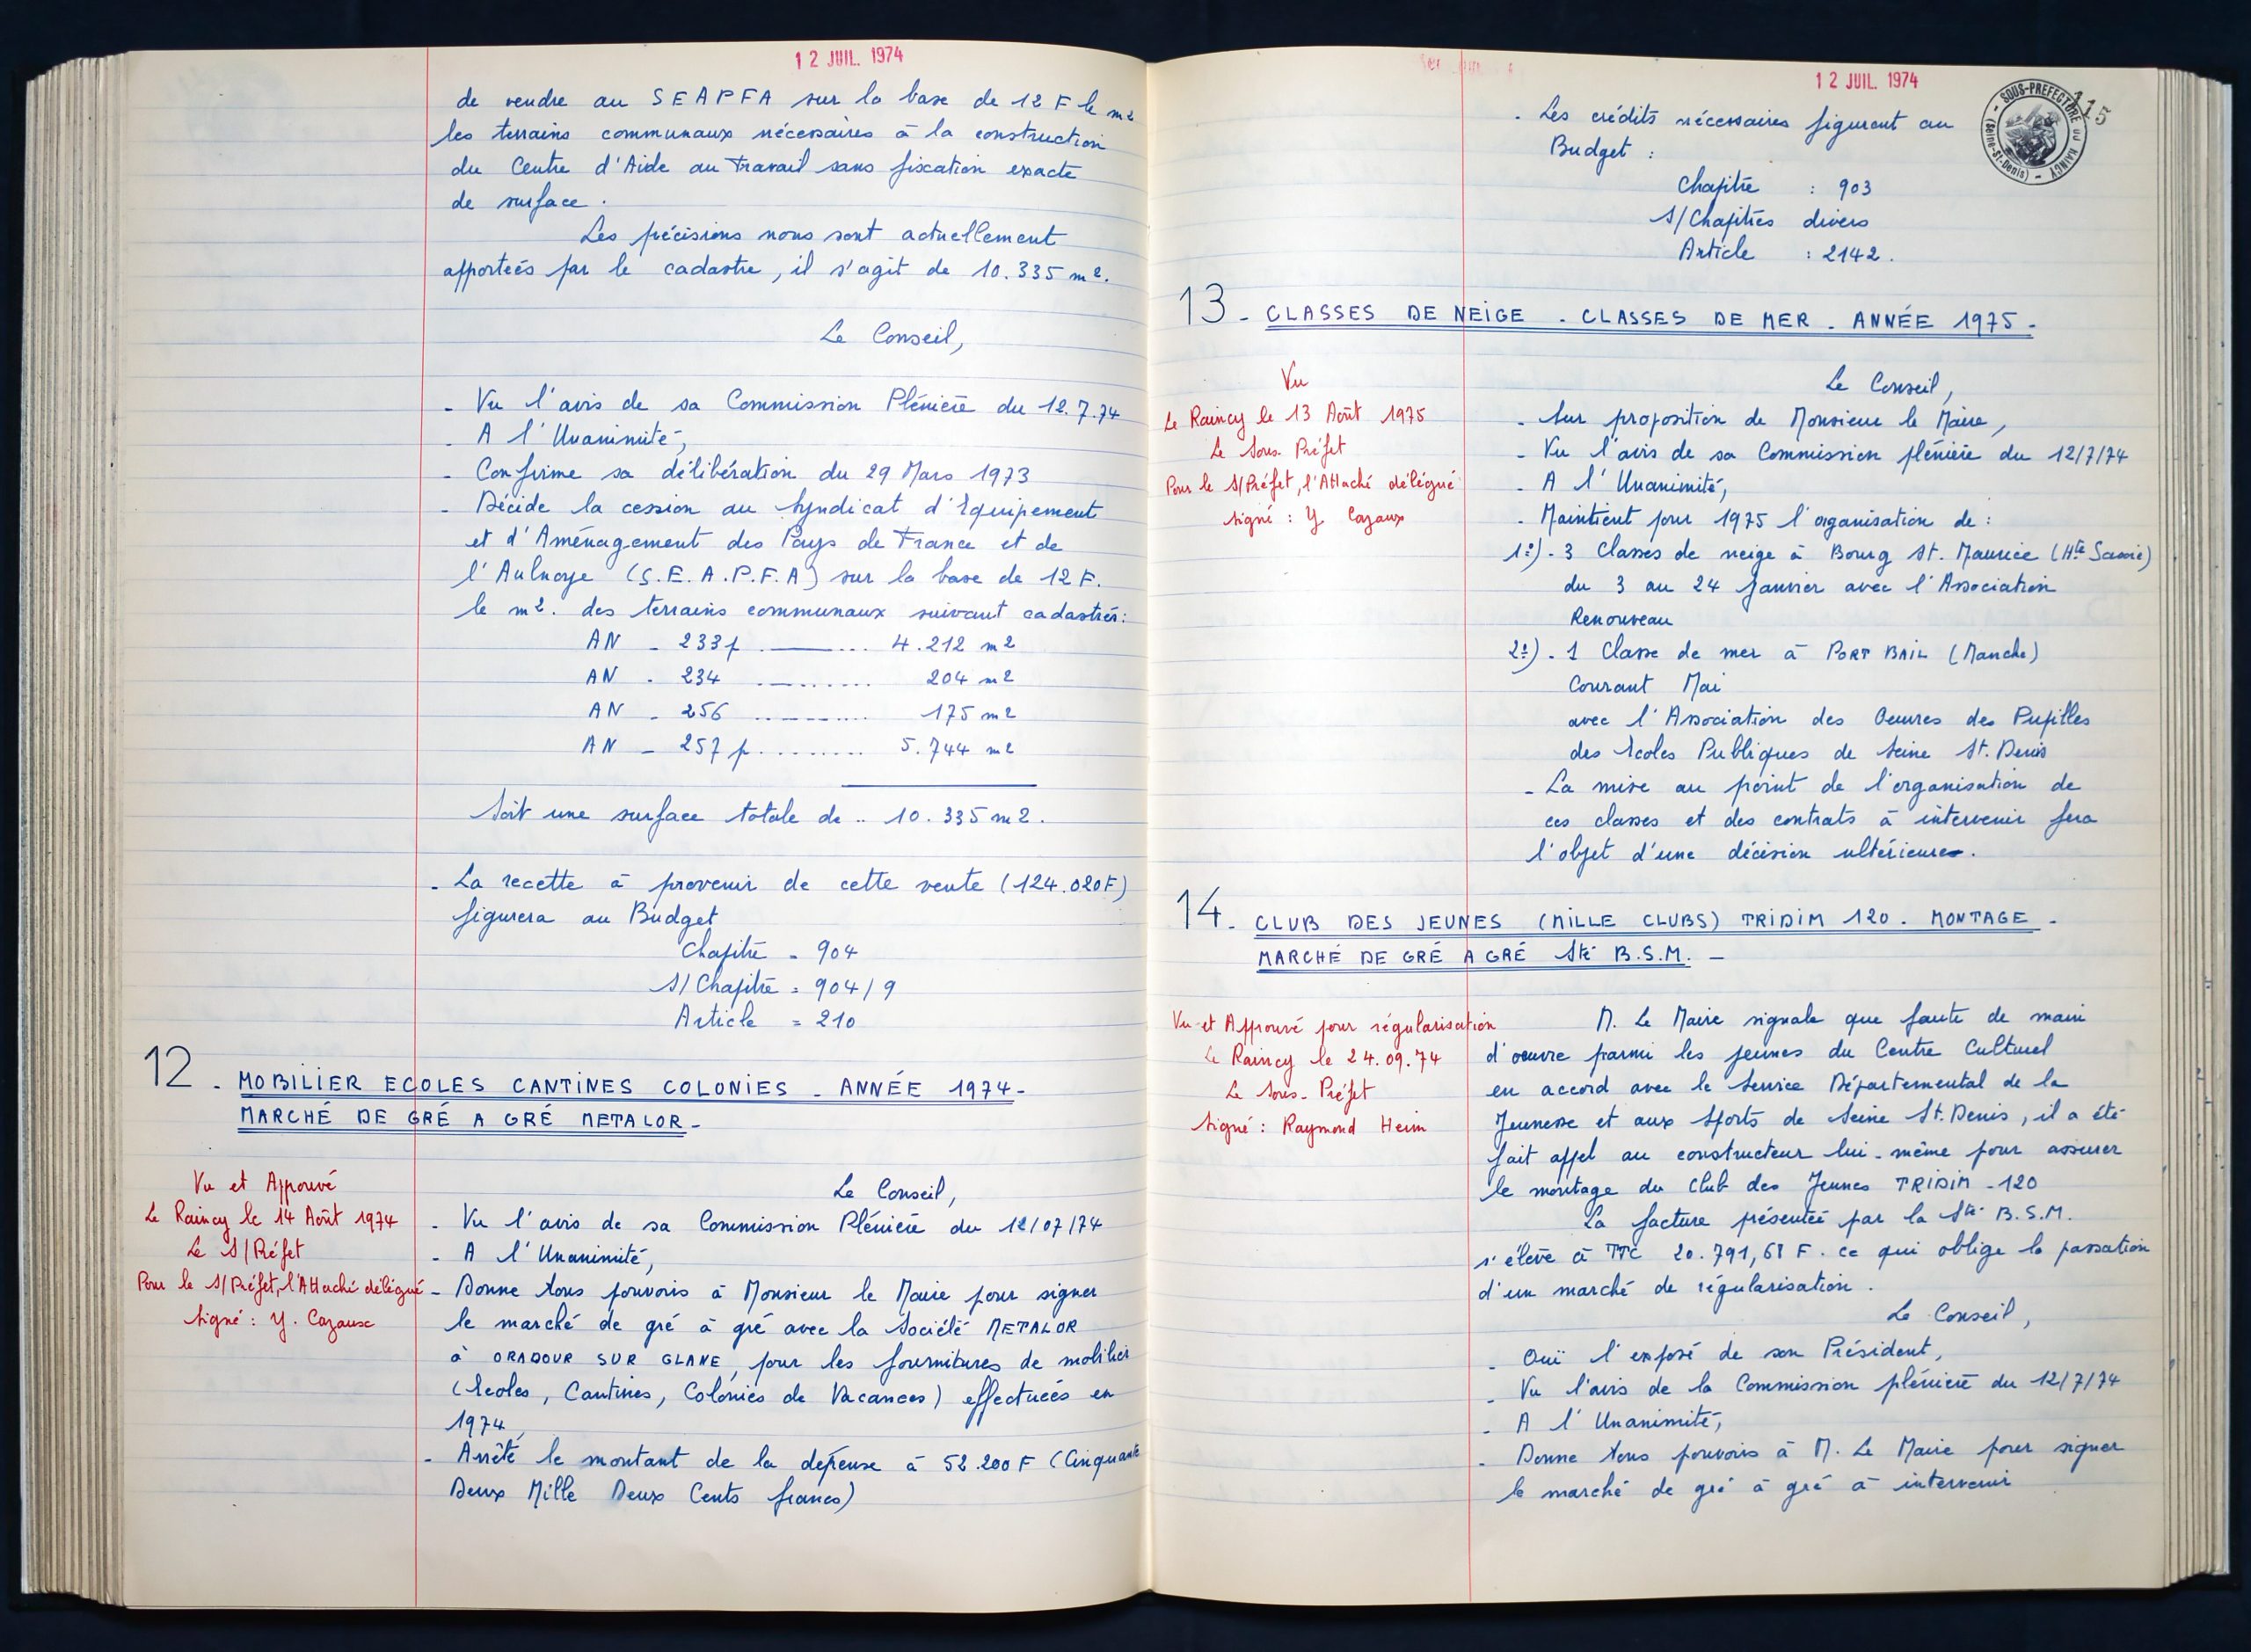 12 JUIL. 1974
de vendre au SEAPFA sur la base de 12 F le m2
les terrains communaux nécessaires à la construction
du Centre d'Aide au Travail sans fixation exacte
de surface.
Les précisions nous sont actuellement
apportées par le cadastre, il s'agit de 10.335 m2.
Le Conseil,
- Vu l'avis de sa Commission Plénière du 12.7.74
- A l'Unanimité,
- Confirme sa délibération du 29 Mars 1973
- Décide la cession au Syndicat d'Equipement
et d'Aménagement des Pays de France et de
l'Aulnoye (S.E.A.P.F.A) sur la base de 12 F.
le m2. des terrains communaux suivant cadastrés:
AN - 233p ......... 4.212 m2
AN - 234 ......... 204 m2
AN - 256 ......... 175 m2
AN - 257 p......... 5.744 m2
Soit une surface totale de .. 10.335 m2.
- La recette à provenir de cette vente (124.020F)
figurera au Budget
Chapitre = 904
S/Chapitre = 904/9
Article = 210
12 - MOBILIER ECOLES CANTINES COLONIES - ANNÉE 1974-
MARCHÉ DE GRÉ A GRÉ METALOR-
Vu et Approuvé
Le Raincy le 14 Août 1974
Le S/Préfet
Pour le S/Préfet, l'Attaché délégué
Signé : Y. Cazaux
Le Conseil,
- Vu l'avis de sa Commission Plénière du 12/07/74
- A l'Unanimité,
- Donne tous pouvoirs à Monsieur le Maire pour signer
le marché de gré à gré avec la Société METALOR
à ORADOUR SUR GLANE, pour les fournitures de mobilier
(Ecoles, Cantines, Colonies de Vacances) effectuées en
1974,
- Arrêté le montant de la dépense à 52.200 F (Cinquante
Deux Mille Deux Cents francs)
12 JUIL. 1974
SOUS-PREFECTURE DU RAINCY - (Seine-St-Denis) -
115
- Les crédits nécessaires figurent au
Budget :
Chapitre : 903
S/Chapitres divers
Article : 2142.
13 - CLASSES DE NEIGE - CLASSES DE MER - ANNÉE 1975 -
Vu
Le Raincy le 13 Août 1975
Le Sous-Préfet
Pour le S/Préfet, l'Attaché délégué
Signé : Y. Cazaux
Le Conseil,
- Sur proposition de Monsieur le Maire,
- Vu l'avis de sa Commission plénière du 12/7/74
- A l'Unanimité,
- Maintient pour 1975 l'organisation de :
1º) - 3 Classes de neige à Bourg St. Maurice (Hte Savoie)
du 3 au 24 Janvier avec l'Association
Renouveau
2º) - 1 Classe de mer à PORT BAIL (Manche)
Courant Mai
avec l'Association des Oeuvres des Pupilles
des Ecoles Publiques de Seine St. Denis
- La mise au point de l'organisation de
ces classes et des contrats à intervenir fera
l'objet d'une décision ultérieure.
14 - CLUB DES JEUNES (MILLE CLUBS) TRIDIM 120 - MONTAGE -
MARCHÉ DE GRÉ A GRÉ Sté B.S.M. -
Vu et Approuvé pour régularisation
Le Raincy le 24.09.74
Le Sous-Préfet
Signé : Raymond Heim
M. Le Maire signale que faute de main
d'oeuvre parmi les jeunes du Centre Culturel
en accord avec le Service Départemental de la
Jeunesse et aux Sports de Seine St. Denis, il a été
fait appel au constructeur lui-même pour assurer
le montage du Club des Jeunes TRIDIM -120
La facture présentée par la Sté B.S.M.
s'élève à TTC 20.791,68 F. ce qui oblige la passation
d'un marché de régularisation.
Le Conseil,
- Ouï l'exposé de son Président,
- Vu l'avis de la Commission plénière du 12/7/74
- A l'Unanimité,
- Donne tous pouvoirs à M. Le Maire pour signer
le marché de gré à gré à intervenir